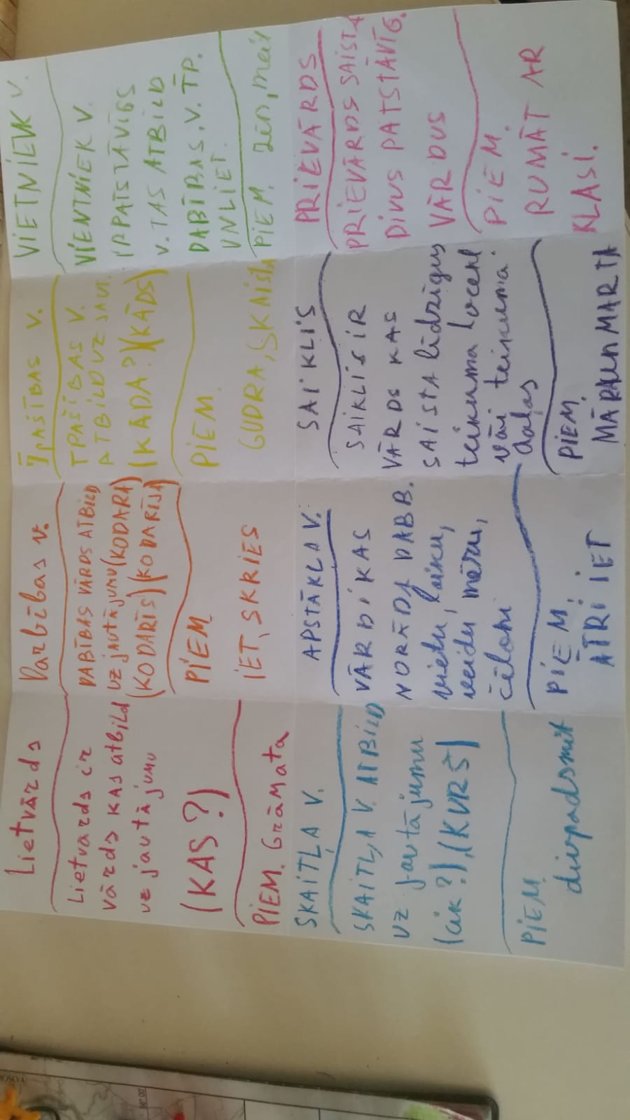 Lietvārds
Lietvards ir
vārds KAS atbild
uz jautājumu
(KAS?)
PIEM. Grāmata
Darbības v.
DABĪBAS VĀRDS ATBILD
UZ JAUTĀJUMU (KODARA)
(KO DARĪS) (KO DARĪJA)
PIEM.
IET, SKRIES
ĪPAŠĪBAS V.
ĪPAŠĪBAS V.
ATBILD UZ JAUT.
(KĀDA?) (KĀDS)
PIEM.
GUDRA, SKAISTA
VIETNIEK V.
VIENTNIEK V.
IR PATSTĀVĪGS
V. TAS ATBILD
DABĪBAS. V. ĪP.
UN LIET.
PIEM.
SKAITĻA V.
SKAITĻA V. ATBILD
UZ jautājumu
(cik?), (KURŠ)
PIEM.
divpadsmit
APSTĀKĻA V.
VĀRDI KAS
NORĀDA DABB.
vietu, laiku,
veidu, mēru,
cēloni
PIEM.
ĀTRI IET
SAIKLIS
SAIKLIS IR
VĀRDS KAS
SAISTA līdzīgus
teikuma locekl
vai teikuma
daļas
PIEM.
MĀRA UN MARTA
PRIEVĀRDS
PRIEVĀRDS SAISTA
DIVUS PATSTĀVĪG.
VĀRDUS
PIEM.
RUMĀT AR
KLASI.